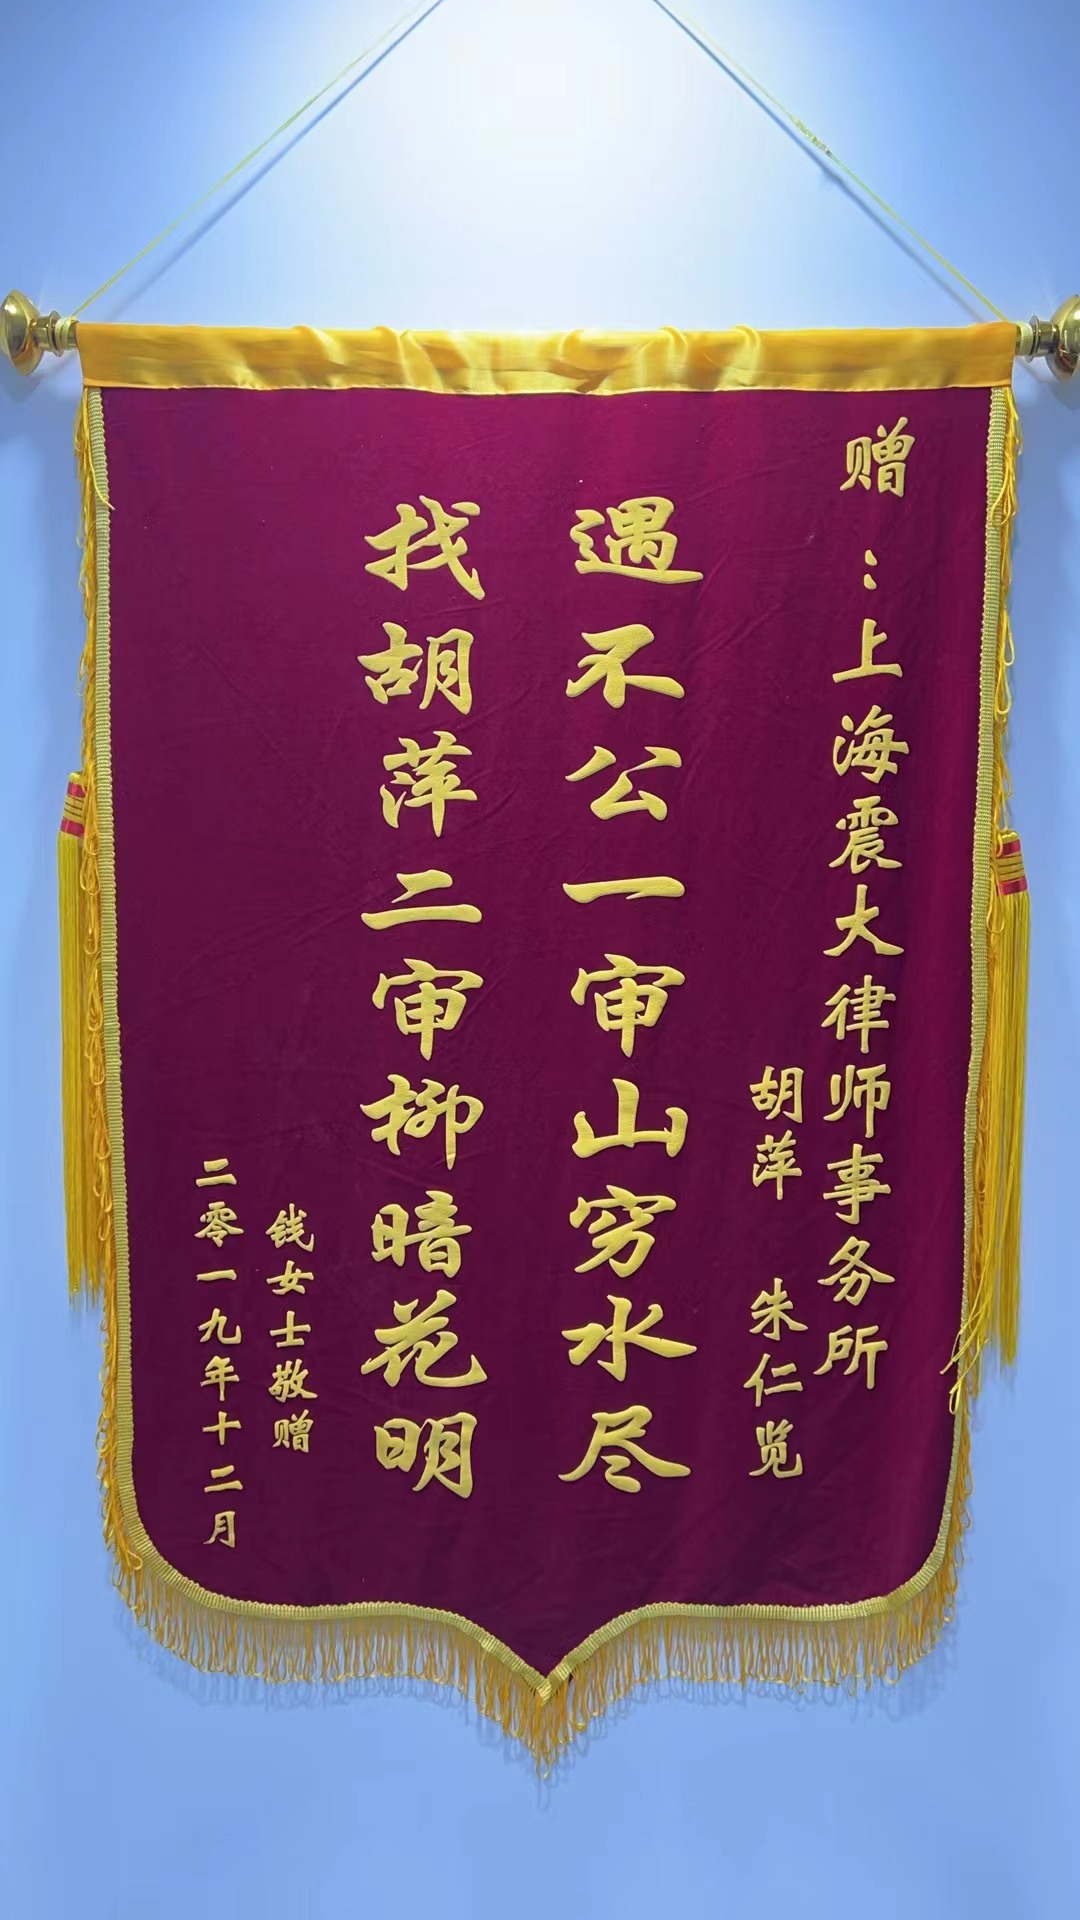 赠：上海震大律师事务所
胡萍 朱仁览
遇不公一审山穷水尽
找胡萍二审柳暗花明
钱女士敬赠
二零一九年十二月